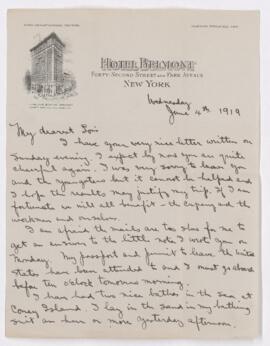 HOTEL BELMONT
FORTY-SECOND STREET AND PARK AVENUE
NEW YORK
Wednesday
June 4th 1919
My dearest
I have your very nice letter written on
Sunday evening. I expect by not you are quite
cheerful again. I was very sorry to leave you
and the youngsters but it cannot be helped and
I hope the results may justify my trip. If I am
fortunate we will all benefit - the Company and the
workmen and ourselves.
I am afraid the mails are too slow for me to
get an answer to the little note I wrote you on
Monday. My passport and permit to leave the United
States have been attended to and I must go aboard
before ten o'clock tomorrow morning.
I have had two nice bathes in the sea at
Coney Island. I lay in the sand in my bathing
suit an hour or more yesterday afternoon.